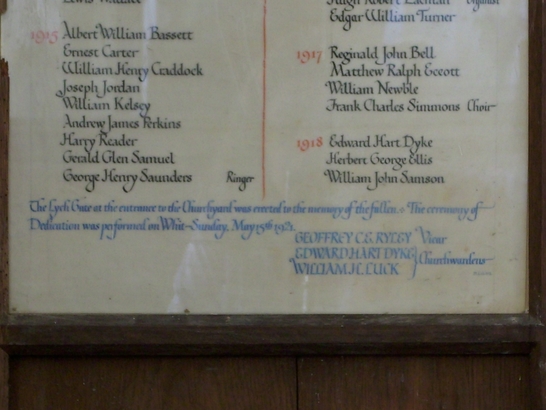 Lewis Wallace
1915 Albert William Bassett
Ernest Carter
William Henry Craddock
Joseph Jordan
William Kelsey
Andrew James Perkins
Harry Reader
Gerald Glen Samuel
George Henry Saunders Ringer
Hugh Robert
Edgar William Turner
1917 Reginald John Bell
Matthew Ralph Eccott
William Newble
Frank Charles Simmons Choir
1918 Edward Hart Dyke
Herbert George Ellis
William John Samson
The Lych Gate at the entrance to the Churchyard was erected to the memory of the fallen. The ceremony of
Dedication was performed on Whit-Sunday, May 15th 1921.
GEOFFREY C.E. RYLEY Vicar
EDWARD HART DYKE
WILLIAM H. LUCK Churchwardens